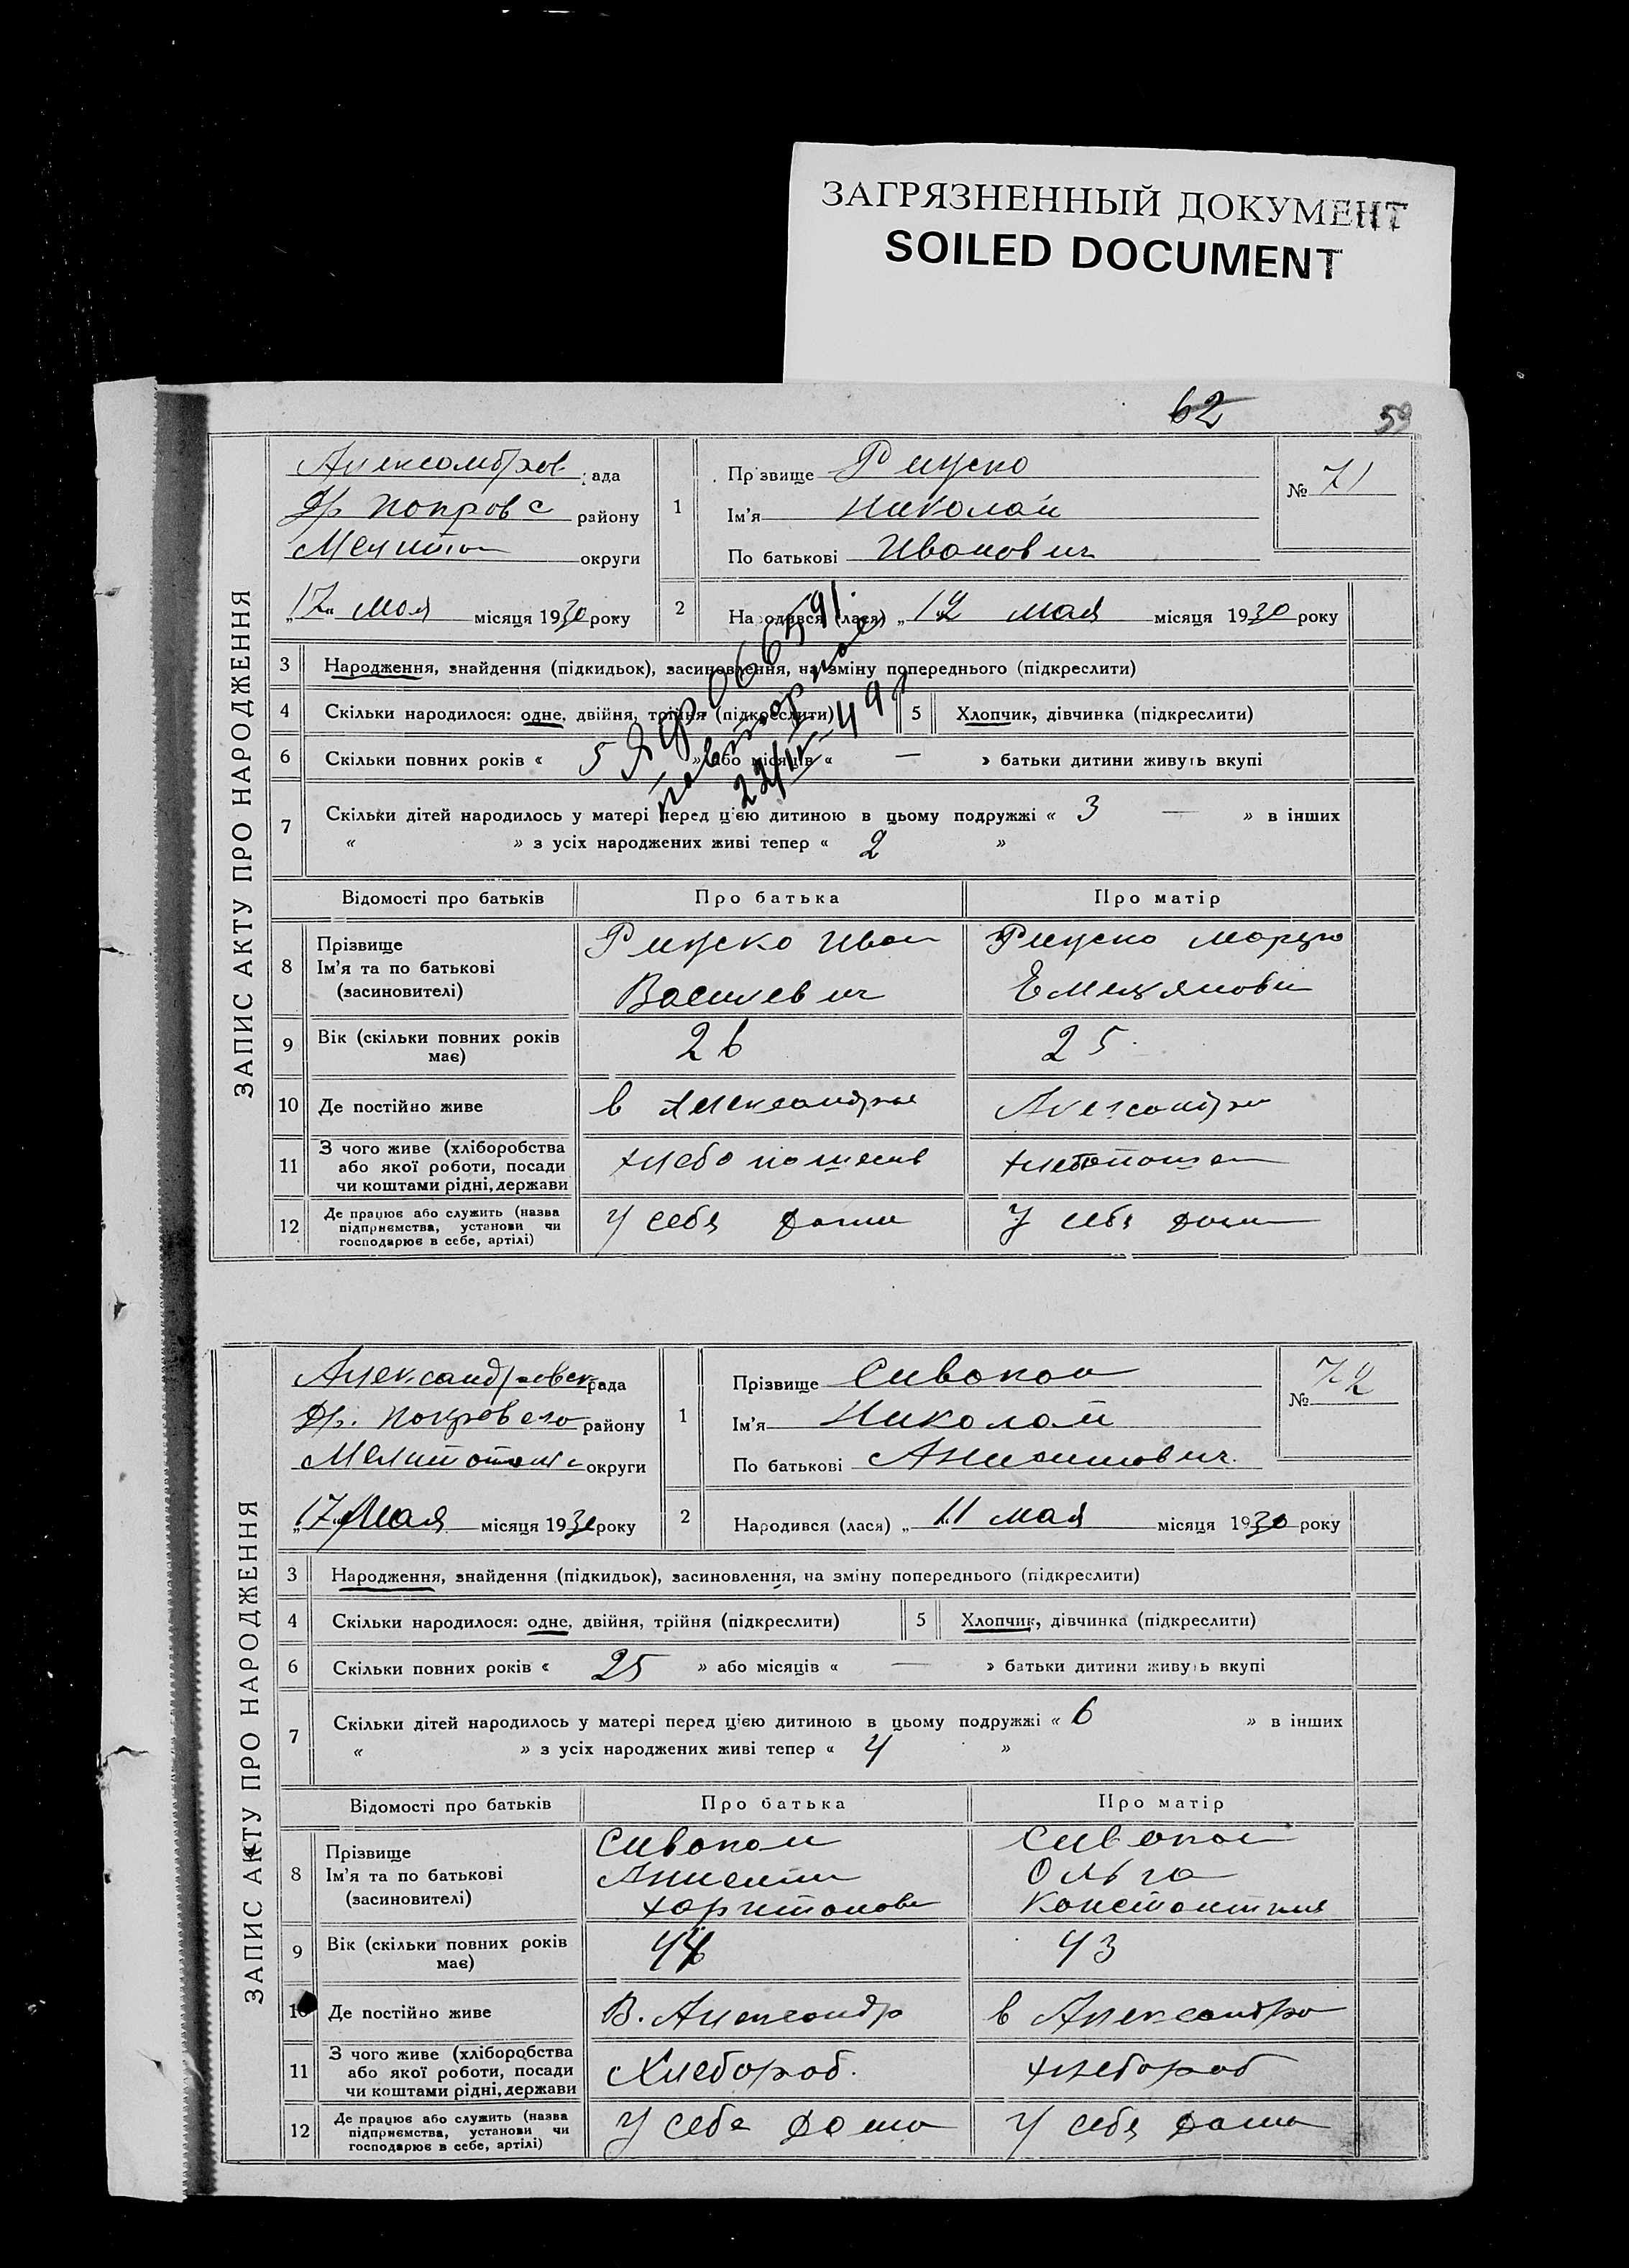 ЗАГРЯЗНЕННЫЙ ДОКУМЕНТ
SOILED DOCUMENT
62
59
ЗАПИС АКТУ ПРО НАРОДЖЕННЯ
Александров рада
Др Покровс району
Мелитоп округи
„17" мая місяця 1930 року
1
Прізвище
Ім'я Николай
По батькові Иванович
№ 71
2
Народився (лася) „12 мая місяця 1930 року
3 Народження, знайдення (підкидьок), засиновлення, на зміну попереднього (підкреслити)
4 Скільки народилося: одне, двійня, трійня (підкреслити) 5 Хлопчик, дівчинка (підкреслити)
6 Скільки повних років « 5 » або місяців « — » батьки дитини живуть вкупі
повторное
22/IV-49
7 Скільки дітей народилось у матері перед ц'ею дитиною в цьому подружжі « 3 — » в інших
« » з усіх народжених живі тепер « 2 »
Відомості про батьків Про батька Про матір
8 Прізвище
Ім'я та по батькові
(засновителі)
Иван
Василевич
9 Вік (скільки повних років має) 26 25
10 Де постійно живе в
11 З чого живе (хліборобства
або якої роботи, посади
чи коштами рідні, держави
12 Де працює або служить (назва
підприємства, установи чи
господарює в себе, артілі)
У себя дома У себя дома
ЗАПИС АКТУ ПРО НАРОДЖЕННЯ
Александровск рада
Др. Покровского району
Мелитопольс округи
„17" Мая місяця 1930 року
1
Прізвище Сивокон
Ім'я Николай
По батькові Анисимович.
№ 72
2
Народився (лася) „11 мая місяця 1930 року
3 Народження, знайдення (підкидьок), засиновлення, на зміну попереднього (підкреслити)
4 Скільки народилося: одне, двійня, трійня (підкреслити) 5 Хлопчик, дівчинка (підкреслити)
6 Скільки повних років « 25 » або місяців « — » батьки дитини живуть вкупі
7 Скільки дітей народилось у матері перед ц'ею дитиною в цьому подружжі « 6 » в інших
« » з усіх народжених живі тепер « 4 »
Відомості про батьків Про батька Про матір
8 Прізвище
Ім'я та по батькові
(засиновителі)
Сивокон Сивокон
Анисим Ольга
Харитонов
9 Вік (скільки повних років має) 43
10 Де постійно живе В. Александр в Александро
11 З чого живе (хліборобства
або якої роботи, посади
чи коштами рідні, держави
Хлебороб. хлебороб
12 Де працює або служить (назва
підприємства, установи чи
господарює в себе, артілі)
У себе дома У себя дома